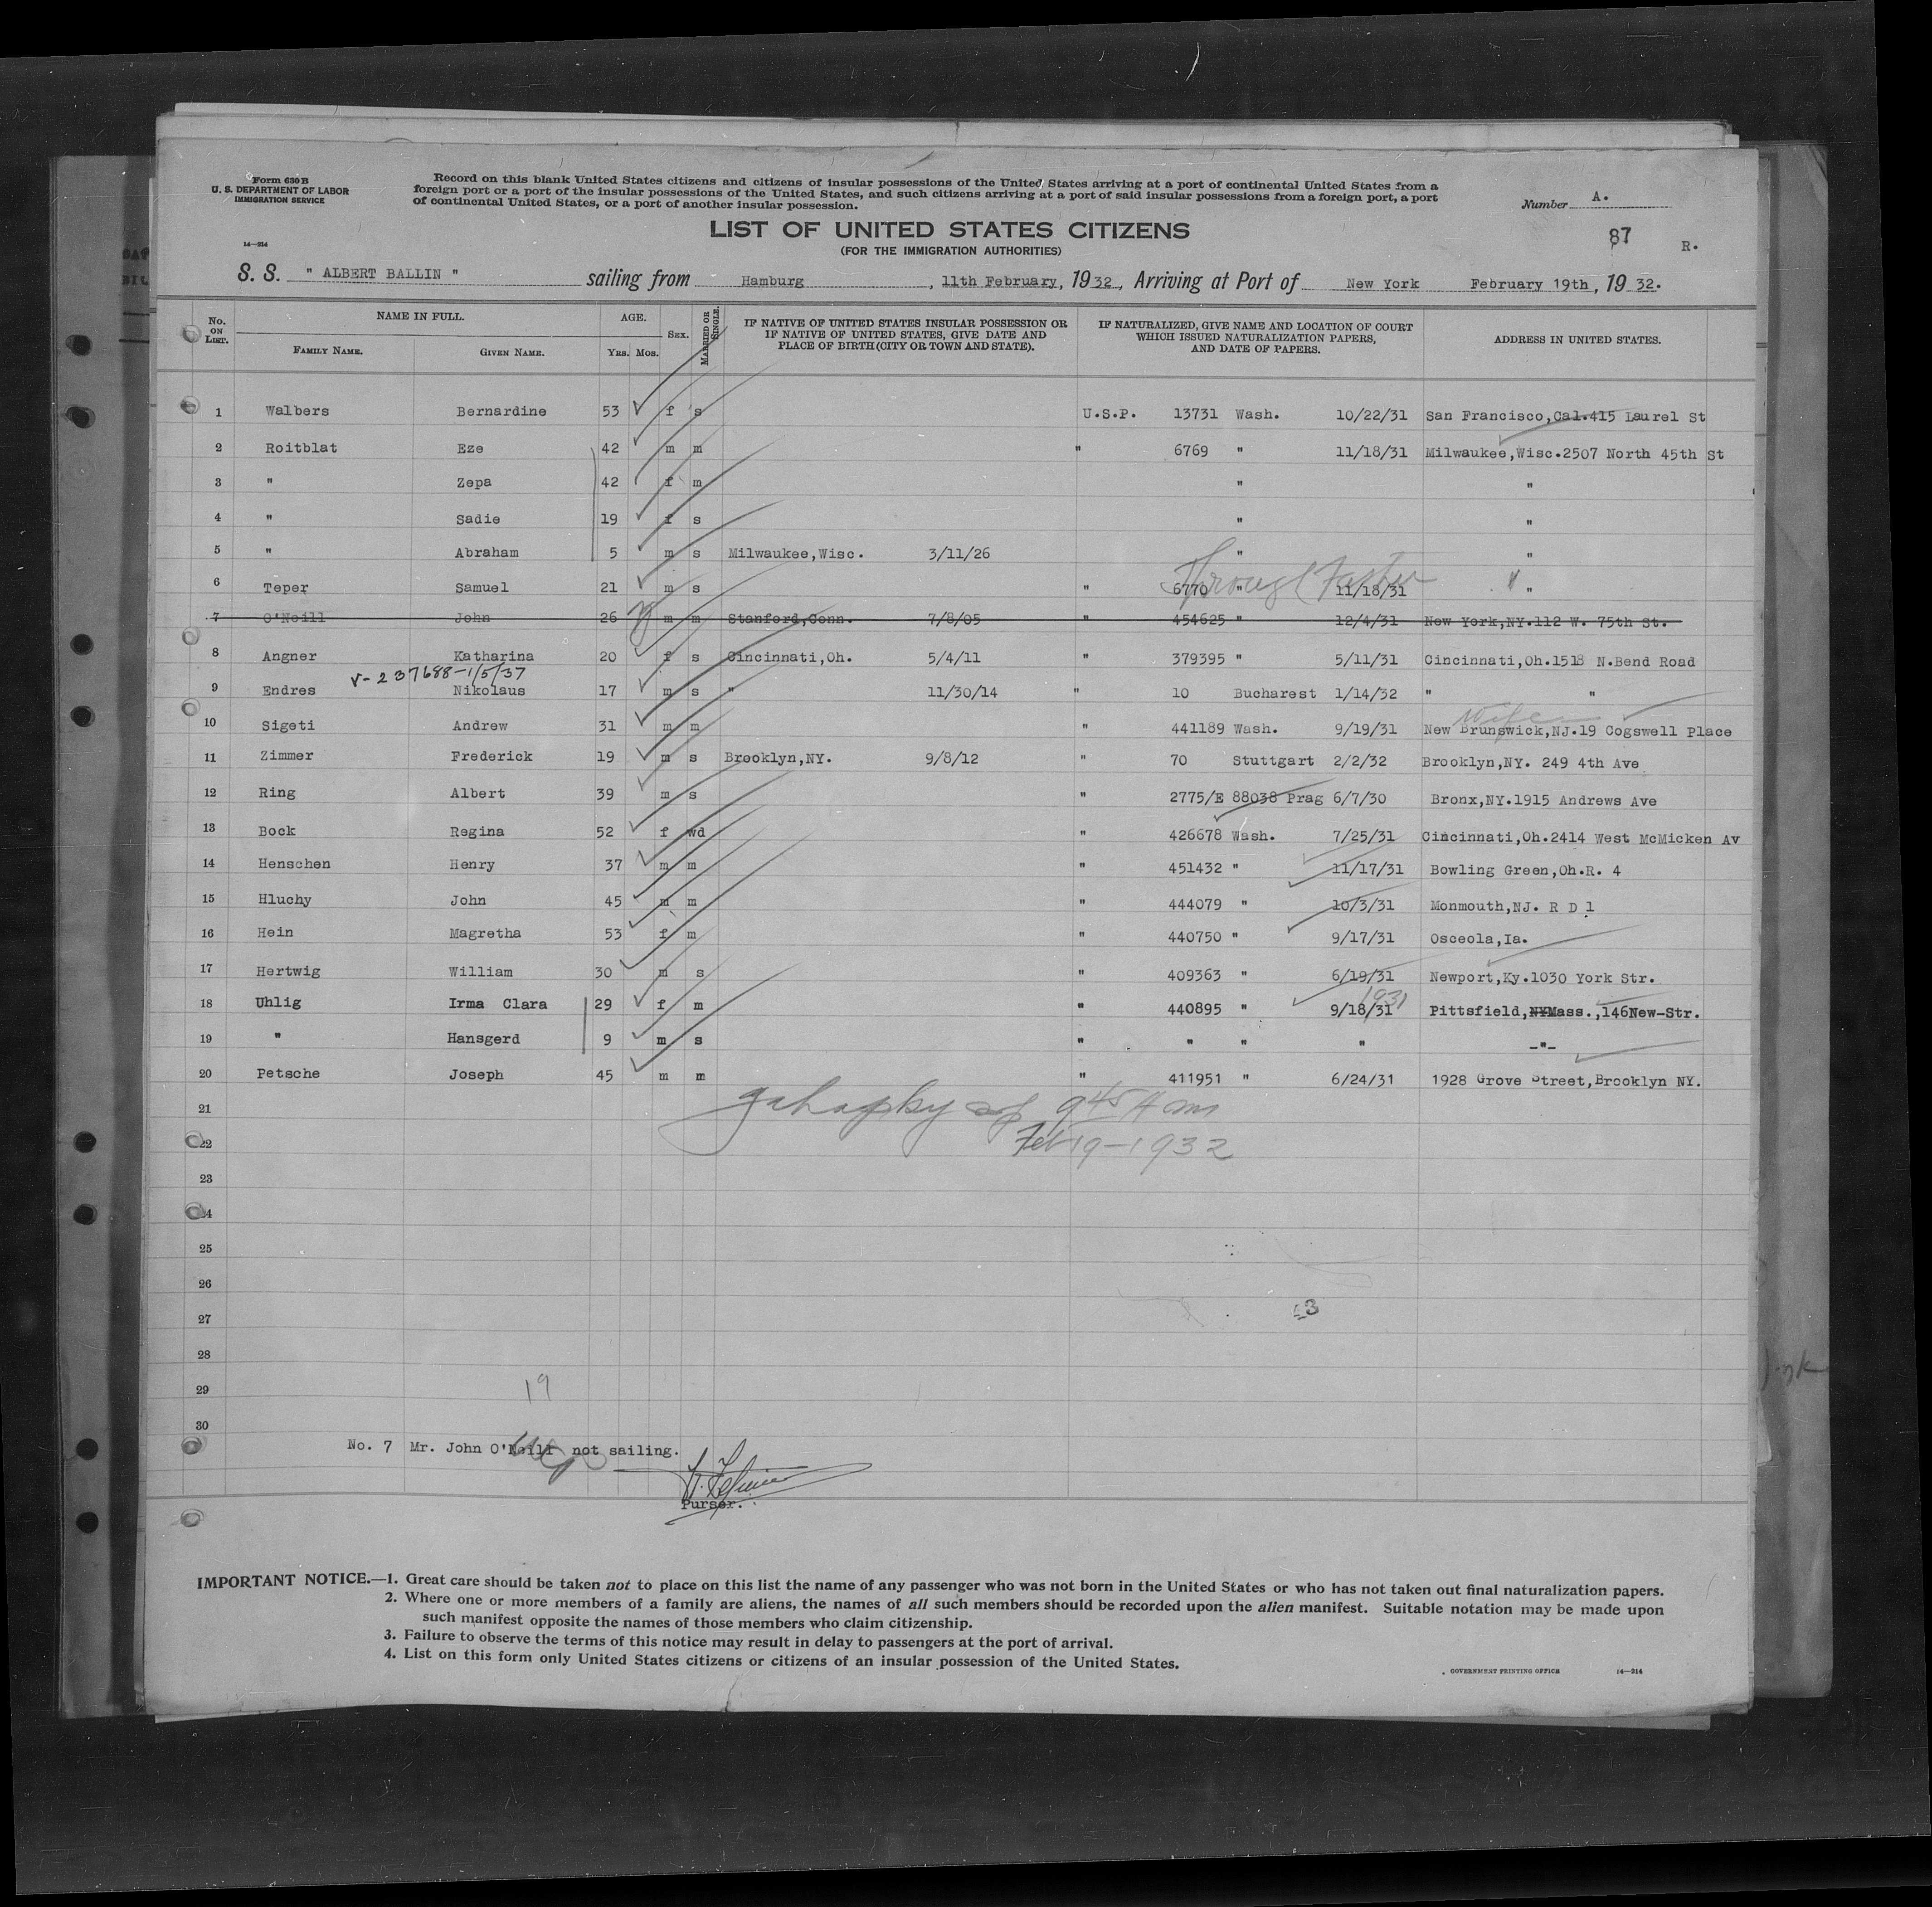 Form 630 B
U. S. DEPARTMENT OF LABOR
IMMIGRATION SERVICE
14—214
Record on this blank United States citizens and citizens of insular possessions of the United States arriving at a port of continental United States from a
foreign port or a port of the insular possessions of the United States, and such citizens arriving at a port of said insular possessions from a foreign port, a port
of continental United States, or a port of another insular possession.
Number A.
LIST OF UNITED STATES CITIZENS
(FOR THE IMMIGRATION AUTHORITIES)
87 R.
S. S. " ALBERT BALLIN " sailing from Hamburg, 11th February, 1932, Arriving at Port of New York February 19th, 1932.
No. ON LIST. NAME IN FULL. FAMILY NAME. GIVEN NAME. AGE. YRS. MOS. SEX. MARRIED OR SINGLE. IF NATIVE OF UNITED STATES INSULAR POSSESSION OR IF NATIVE OF UNITED STATES, GIVE DATE AND PLACE OF BIRTH (CITY OR TOWN AND STATE). IF NATURALIZED, GIVE NAME AND LOCATION OF COURT WHICH ISSUED NATURALIZATION PAPERS, AND DATE OF PAPERS. ADDRESS IN UNITED STATES.
1 Walbers Bernardine 53 f s U.S.P. 13731 Wash. 10/22/31 San Francisco,Cal.415 Laurel St
2 Roitblat Eze 42 m m " 6769 " 11/18/31 Milwaukee,Wisc.2507 North 45th St
3 " Zepa 42 f m " "
4 " Sadie 19 f s " "
5 " Abraham 5 m s Milwaukee,Wisc. 3/11/26 " "
Through Father
6 Teper Samuel 21 m s " 6770 " 11/18/31 "
7 O'Neill John 26 m m Stanford,Conn. 7/8/05 " 454625 " 12/4/31 New York,NY.112 W. 75th St.
8 Angner Katharina 20 f s Cincinnati,Oh. 5/4/11 " 379395 " 5/11/31 Cincinnati,Oh.1518 N.Bend Road
V-237688-1/5/37
9 Endres Nikolaus 17 m s " 11/30/14 " 10 Bucharest 1/14/32 " "
Wife
10 Sigeti Andrew 31 m m " 441189 Wash. 9/19/31 New Brunswick,NJ.19 Cogswell Place
11 Zimmer Frederick 19 m s Brooklyn,NY. 9/8/12 " 70 Stuttgart 2/2/32 Brooklyn,NY. 249 4th Ave
12 Ring Albert 39 m s " 2775/E 88038 Prag 6/7/30 Bronx,NY.1915 Andrews Ave
13 Bock Regina 52 f wd " 426678 Wash. 7/25/31 Cincinnati,Oh.2414 West McMicken Av
14 Henschen Henry 37 m m " 451432 " 11/17/31 Bowling Green,Oh.R. 4
15 Hluchy John 45 m m " 444079 " 10/3/31 Monmouth,NJ. R D 1
16 Hein Magretha 53 f m " 440750 " 9/17/31 Osceola,Ia.
17 Hertwig William 30 m s " 409363 " 6/19/31 Newport,Ky.1030 York Str.
1931
18 Uhlig Irma Clara 29 f m " 440895 " 9/18/31 Pittsfield,NYMass.,146New-Str.
19 " Hansgerd 9 m s " " " " -"-
20 Petsche Joseph 45 m m " 411951 " 6/24/31 1928 Grove Street,Brooklyn NY.
21 9 45 Am
22 Feb 19-1932
23
24
25
26
27
28
29
19
30
No. 7 Mr. John O'Neill not sailing.
Purser.
IMPORTANT NOTICE.—1. Great care should be taken not to place on this list the name of any passenger who was not born in the United States or who has not taken out final naturalization papers.
2. Where one or more members of a family are aliens, the names of all such members should be recorded upon the alien manifest. Suitable notation may be made upon
such manifest opposite the names of those members who claim citizenship.
3. Failure to observe the terms of this notice may result in delay to passengers at the port of arrival.
4. List on this form only United States citizens or citizens of an insular possession of the United States.
GOVERNMENT PRINTING OFFICE 14—214